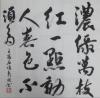 濃綠萬枝
紅一點動
人春色不
須多